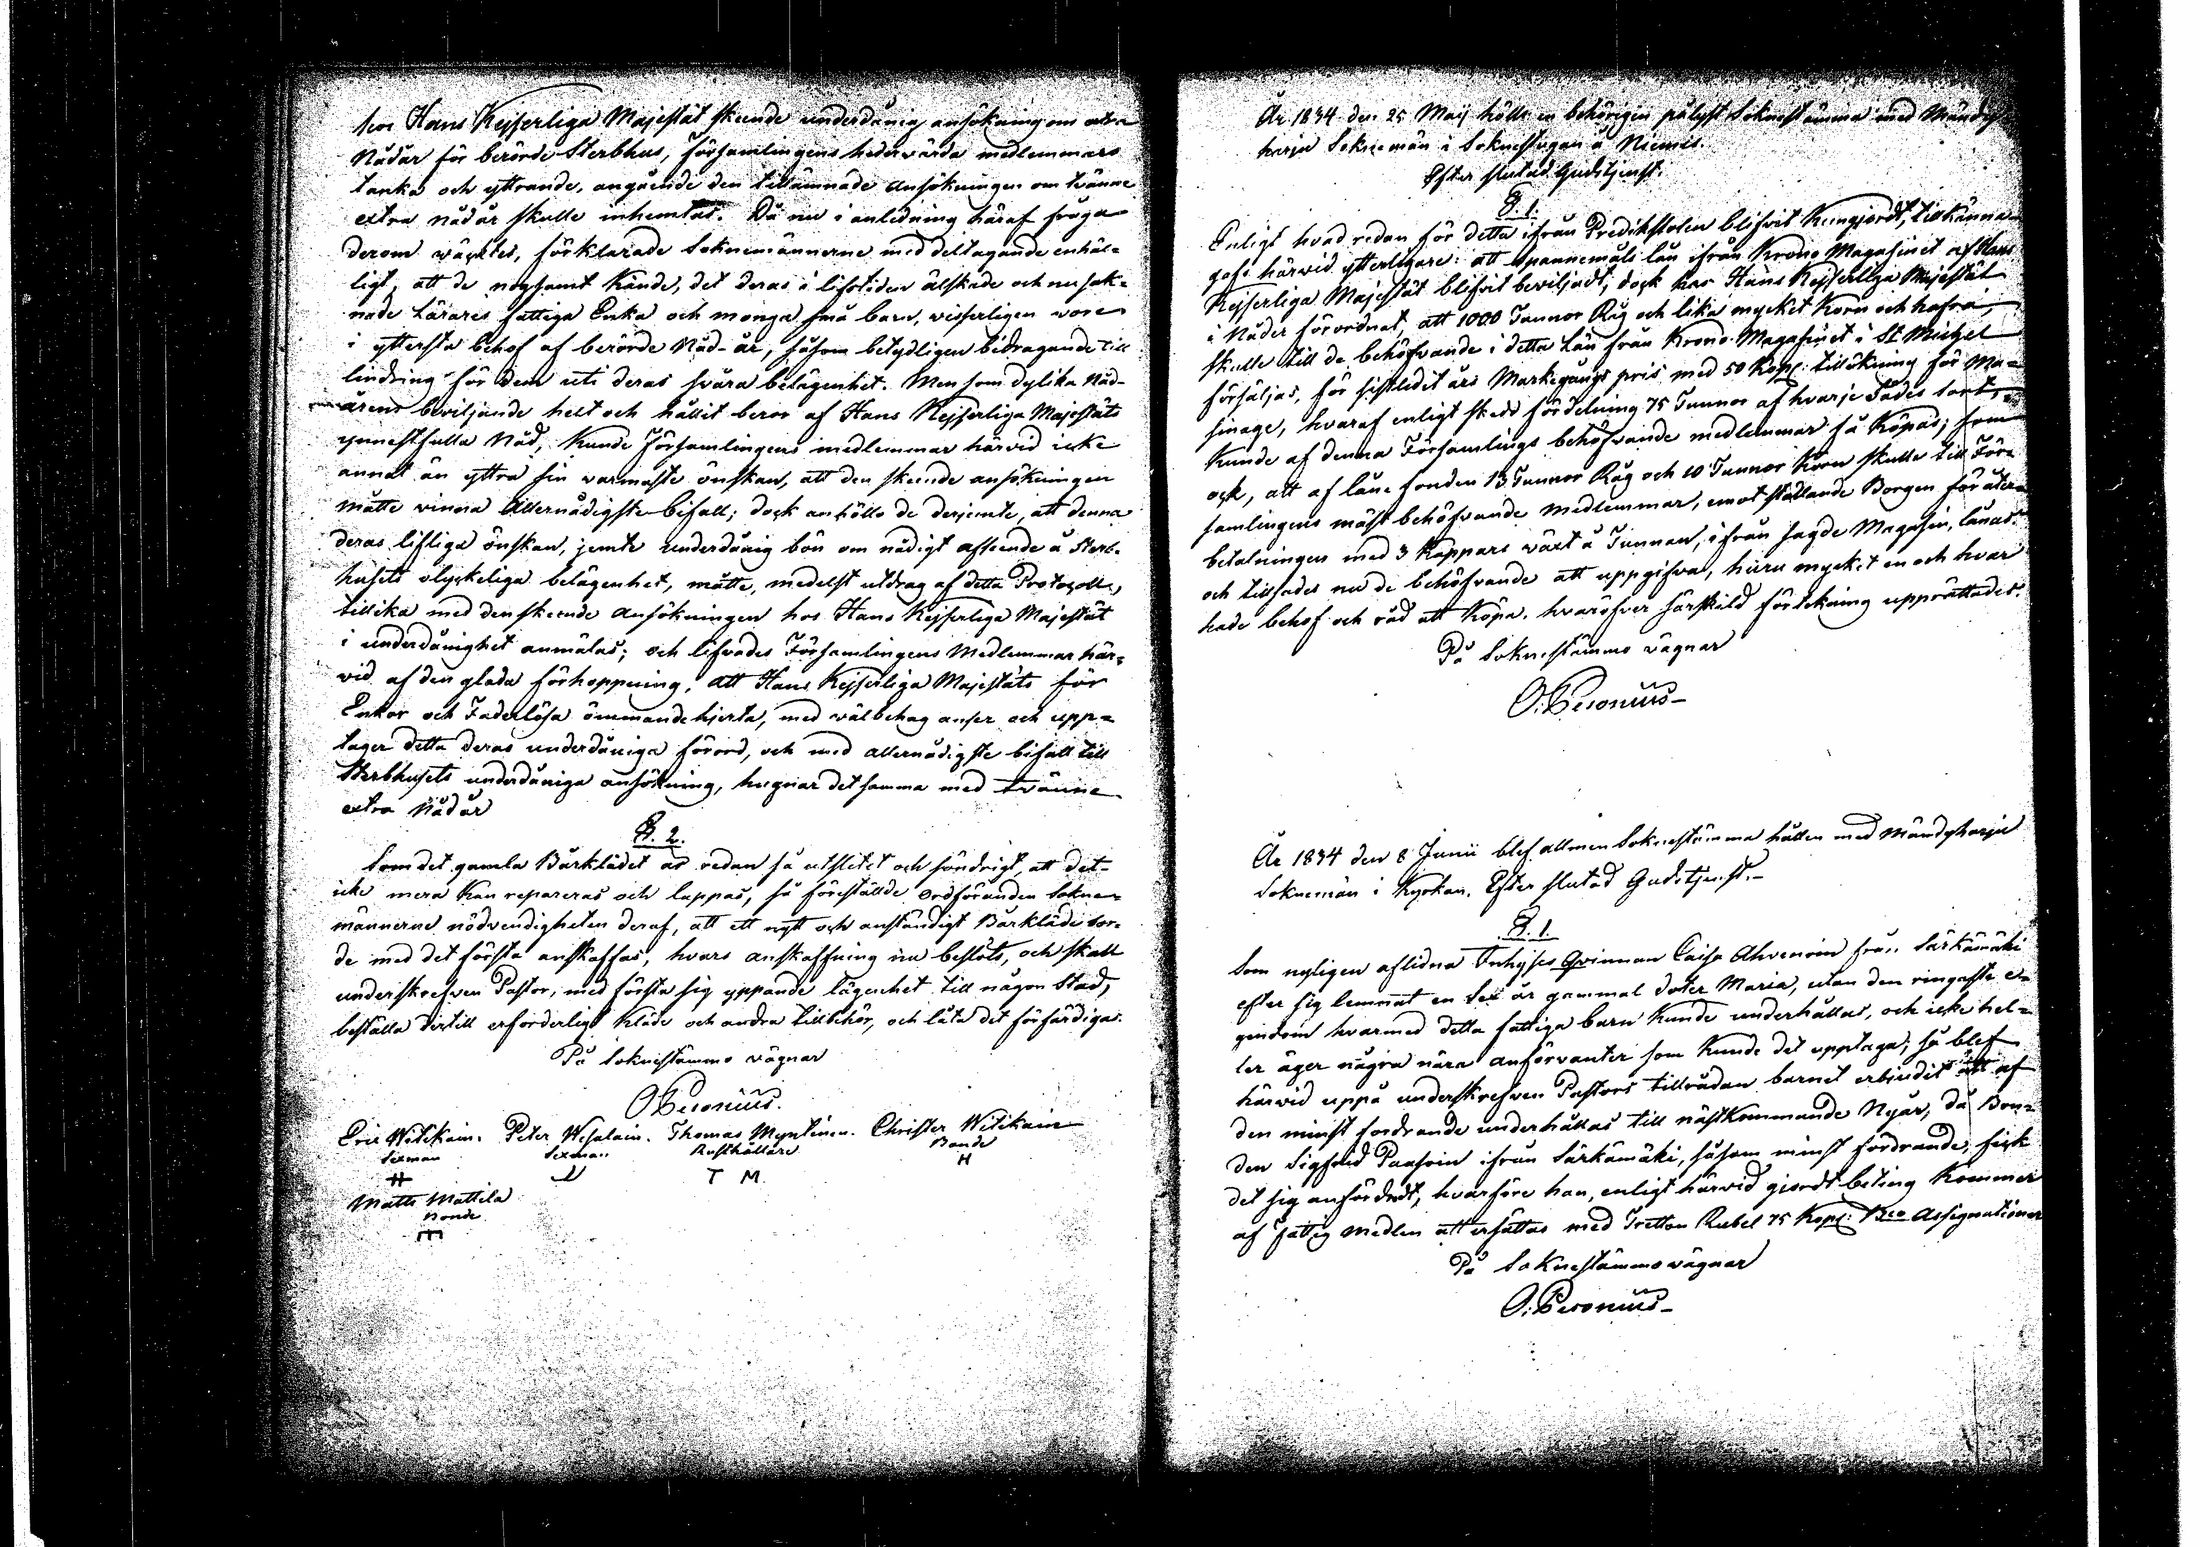 hos Hans Kejserliga Majestät skeende underdånig ansökning om extra
Nådår för berörde Sterbhus, församlingens hedervärda medlemmars
tanka och yttrande, angående den tillämnade ansökningen om tvänne
extra nådår skulle inhemtas. Då nu i anledning häraf fråga
derom väcktes, förklarade Soknemännerne med deltagande enhäl-
ligt, att de nogsamt kände, det deras i lifstiden älskade och nu sak-
nade Lärares fattiga Enka och monga små barn, visserligen vore
i yttersta behof af berörde Nåd-år, såsom betydligen bidragande till
lindring för dem uti deras svåra belägenhet. Men som dylika Nåd-
årens beviljande helt och hållit beror af Hans Kejserliga Majestäts
ynnestfulla Nåd, kunde Församlingens medlemmar härvid icke
annat än yttra sin varmaste önskan, att den skeende ansökningen
måtte vinna Allernådigste bifall; dock anhöllo de derjemte, att denna
deras lifliga önskan, jemte underdånig bön om nådigt afseende å Sterb-
husets olyckeliga belägenhet, måtte, medelst utdrag af detta Protocoll,
tillika med den skeende ansökningen hos Hans Kejserliga Majestät
i underdånighet anmälas; och lifvades Församlingens Medlemmar här-
vid af den glada förhoppning, att Hans Kejserliga Majestäts för
Enkor och Faderlösa ömmande hjerta, med välbehag anser och upp-
tager detta deras underdåniga förord, och med allernådigste bifall till
Sterbhusets underdåniga ansökning, hugnar det samma med tvänne
extra Nådår
§. 2.
Som det gamla Bårklädet är redan så utslitet och söndrigt, att det
icke mera kan repareras och lappas, så föreställde ordföranden Sokne-
männerne nödvendigheten deraf, att ett nytt och anständigt Bårkläde bor-
de med det första anskaffas, hvars anskaffning nu beslöts, och skall
underskrefven Pastor, med första sig yppande lägenhet till någon Stad,
beställa dertill erforderligt kläde och andra tillbehör, och låta det förfärdiga.
På Soknestämmo vägnar
O Peronius.
Eric Witikain. Peter Wesalain. Thomas Myntinen. Christer Witikain
Sexman Sexman Rusthållare Bonde
H T M H
Matts Mattila
Bonde
År 1834 den 25 Maij hölls en behörigen pålyst Soknestämma med Mändy-
harju Soknemän i Soknestugan å Niemis.
Efter slutad Gudstjenst.
§. 1.
Enligt hvad redan för detta ifrån Predikstolen blifvit kungjordt, tillkänna
gafs härvid ytterligare: att spannemåls lån ifrån Krono Magasinet af Hans
Kejserliga Majestät blifvit beviljadt; dock har Hans Kejserliga Majestät
i Nåder förordnat, att 1000 Tunnor Råg och lika mycket Korn och hafra,
skulle till de behöfvande i detta Län från Krono-Magasinet i St Michel
försäljas, för sistledit års Markegångs pris med 50 Kop: tillökning för Ma-
sinage, hvaraf enligt skedd fördelning 75 Tunnor af hvarje Sädes sort,
kunde af denna Församlings behöfvande medlemmar få köpas; som
ock, att af låne fonden 13 Tunnor Råg och 10 Tunnor Korn skulle till För-
samlingens mäst behöfvande medlemmar, emot ställande Borgen för åter-
betalningen med 3 Kappars växt å Tunnan, ifrån sagde Magasin, lånas.
och tillsades nu de behöfvande att uppgifva, huru mycket en och hvar
hade behof och råd att köpa. hvaröfver särskild förtekning upprättades.
På Soknestämmo vägnar
O. Peronius
År 1834 den 8 Junii blef allmen Soknestämma hållen med Mändyharju
Soknemän i Kyrkan. Efter slutad Gudstjenst.
§. 1.
Som nyligen aflidna Inhyses Qvinnan Caisa Ahvenoin från Särkämäki
efter sig lemnat en sex år gammal dotter Maria, utan den ringaste e-
gendom hvarmed detta fattiga barn kunde underhållas, och icke hel-
ler äger några nära anförvanter som kunde det upptaga; så blef
härvid uppå underskrefven Pastors tillrådan barnet erbjudit att af
den minst fordrande underhållas till nästkommande Nyår, då Bon-
den Sigfred Paasoin ifrån Särkämäki, såsom minst fordrande, fick
det sig anförtrodt, hvarföre han, enligt härvid gjordt beting kommer
af fattig medlen att ersättas med Tretton Rubel 75 Kop: Bco Assignationer
På Soknestämmo vägnar
O. Peronius